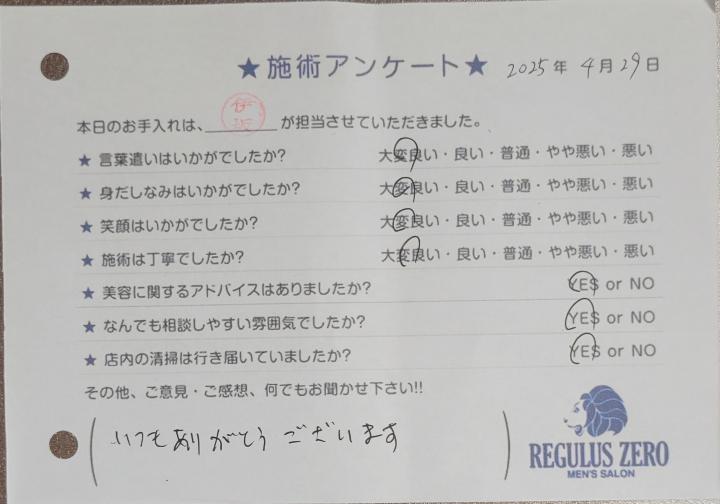 ★施術アンケート★ 2025年 4月29日
本日のお手入れは、伊坂が担当させていただきました。
★ 言葉遣いはいかがでしたか? 大変良い・良い・普通・やや悪い・悪い
★ 身だしなみはいかがでしたか? 大変良い・良い・普通・やや悪い・悪い
★ 笑顔はいかがでしたか? 大変良い・良い・普通・やや悪い・悪い
★ 施術は丁寧でしたか? 大変良い・良い・普通・やや悪い・悪い
★ 美容に関するアドバイスはありましたか? YES or NO
★ なんでも相談しやすい雰囲気でしたか? YES or NO
★ 店内の清掃は行き届いていましたか? YES or NO
その他、ご意見・ご感想、何でもお聞かせ下さい!!
いつもありがとうございます
REGULUS ZERO
MEN'S SALON